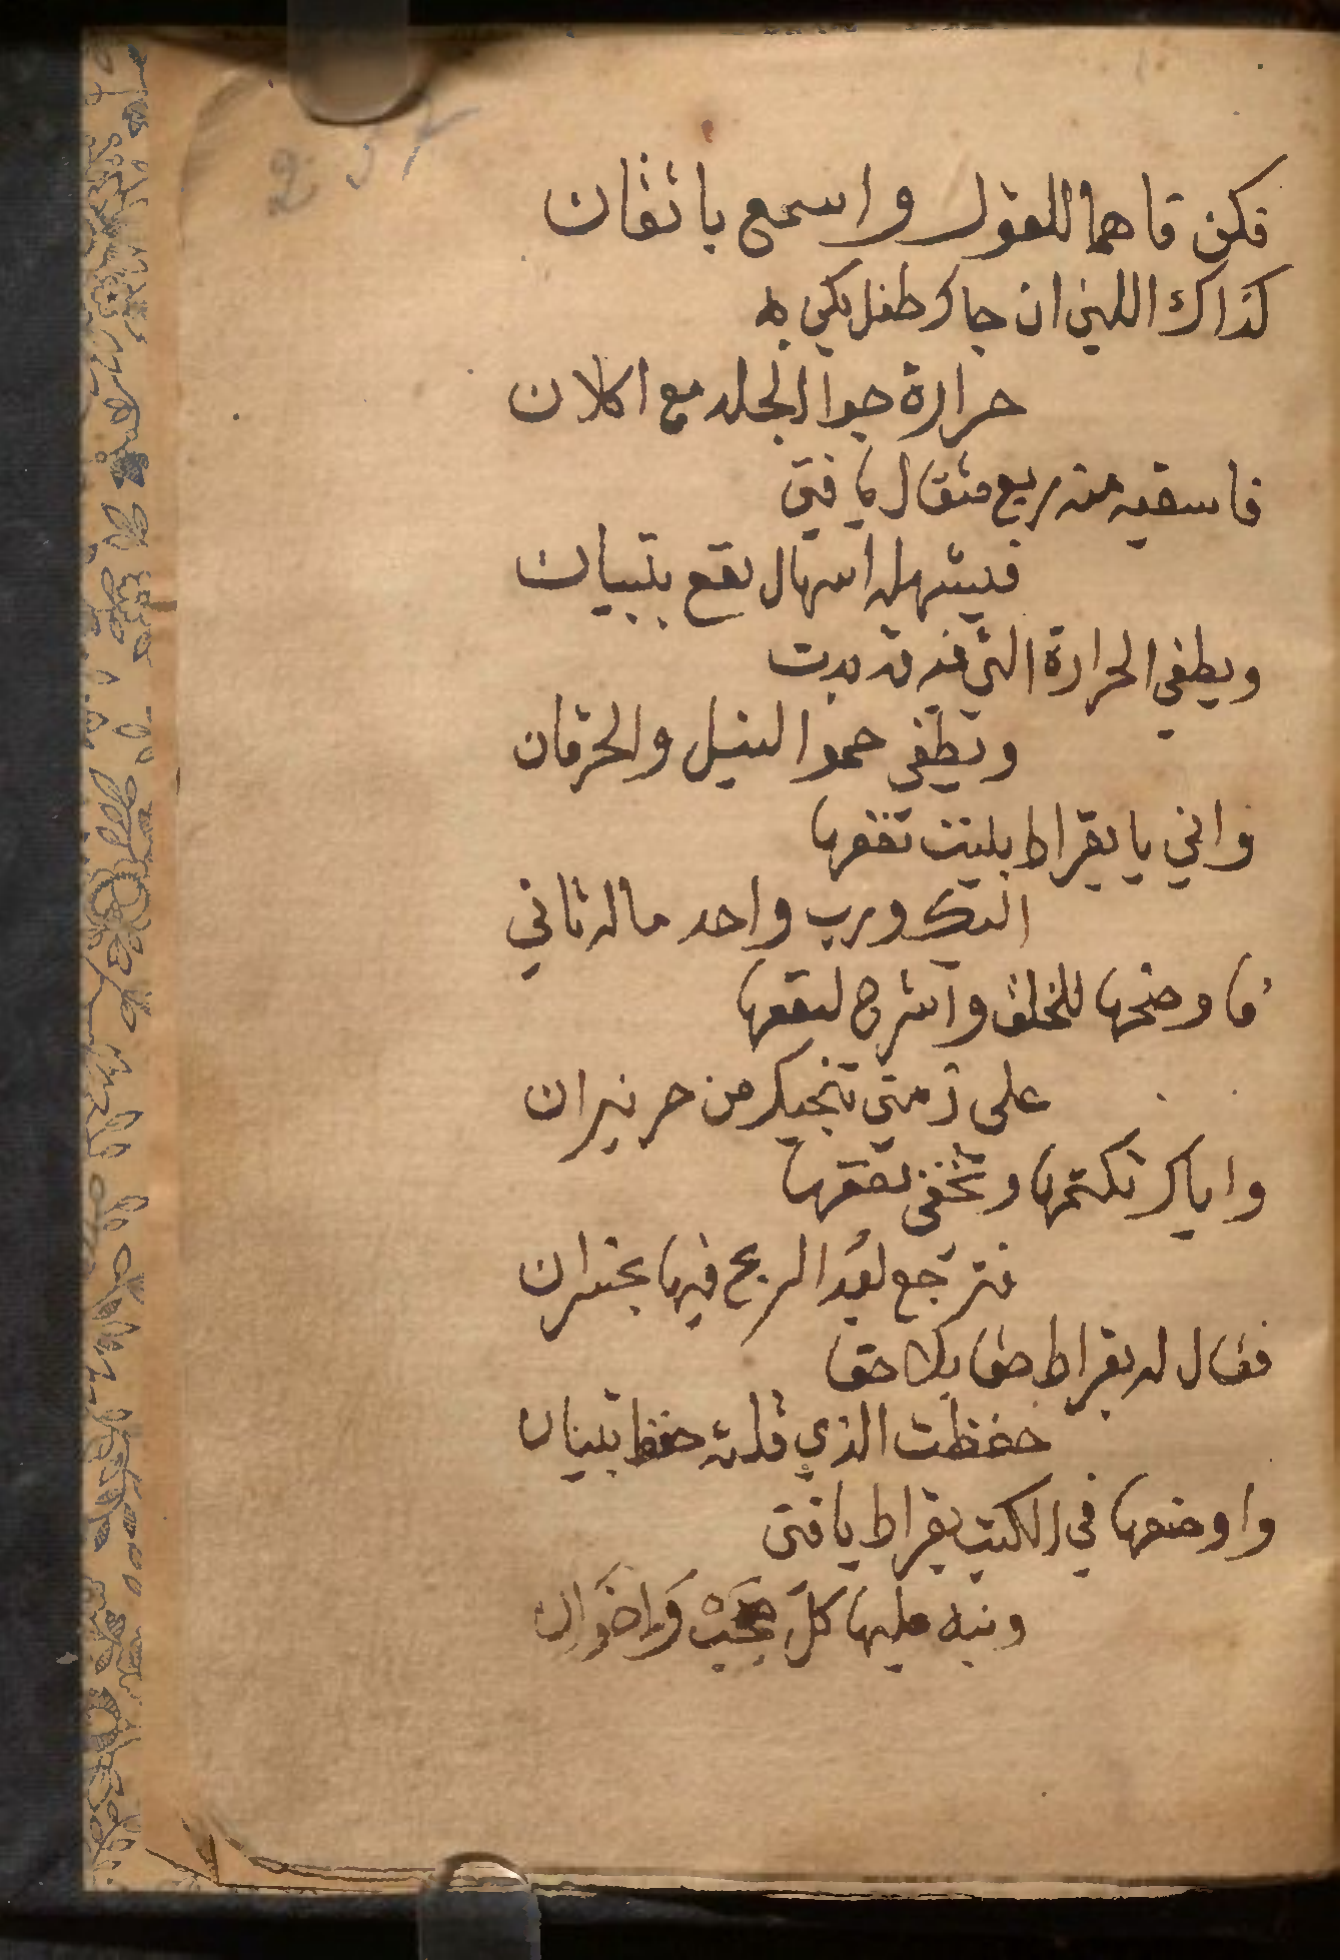 فكن فاهما للقول واسمع باتقان
كذاك اللين ان جاك طفل بكي به
حرارة جوا الجلد مع اكلان
فاسقيه منه ربع مثقال يا فتى
فيسهله اسهال نقع بتبيان
ويطفي الحرارة التي فيه قد بدت
وتطفي حموا النيل والحرقان
واني يا بقراط بلينت نفعها
اليك ورب واحد ماله ثاني
فاوضحها للخلق واشرح لنفعها
على ذمتي تنجيك من حر نيران
واياك تكتمها وتخفي نفعها
فترجع بعد الربح فيها بخسران
فقال له بقراط حقا بلا حقا
حفظت الذي قلته حفظ بتبيان
واوضعها في الكتب بقراط يا فتى
ونبه عليها كل محب واخوان